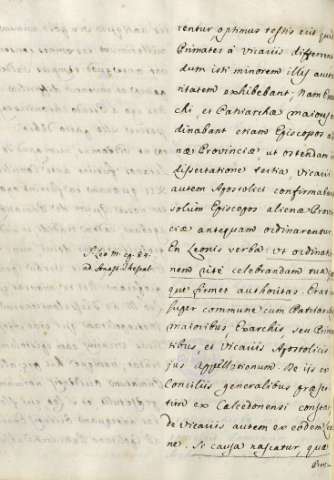 rentur optimus testis erit qui
Primates à Vicariis differen
dum isti minorem illis auto
ritatem exhibebant, nam
chi, et Patriarchæ maiores
dinabant etiam Episcopos al
næ Provinciæ, ut ostendam
dissertatione tertia, Vicarii
autem Apostolici confirmaba
solum Episcopos alienæ Provi
ciæ antequam ordinarentur
En Leonis verba et ordinatio
nem rite celebrandam tua
que firmet authoritas. Erat
super commune cum Patriarch
maioribus Exarchis seu Prima
tibus, et Vicariis Apostolicis
jus appellationum. De iis ex
Conciliis generalibus præser
tim ex Calcedonensi constat
de Vicariis autem ex eodem Leo
ne. Si causa nascatur, quæ
S. Leo m. ep. 84.
ad Anast. Thessal.